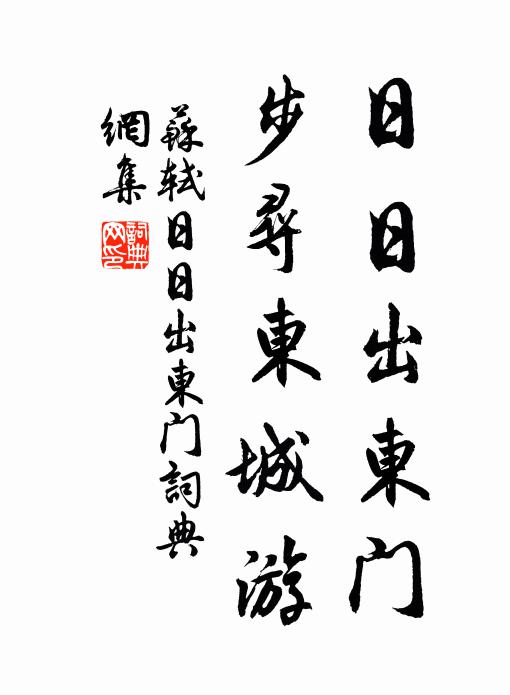 日日出東門
步尋東城游
蘇軾日日出東門詞典
網集
詞典
网印